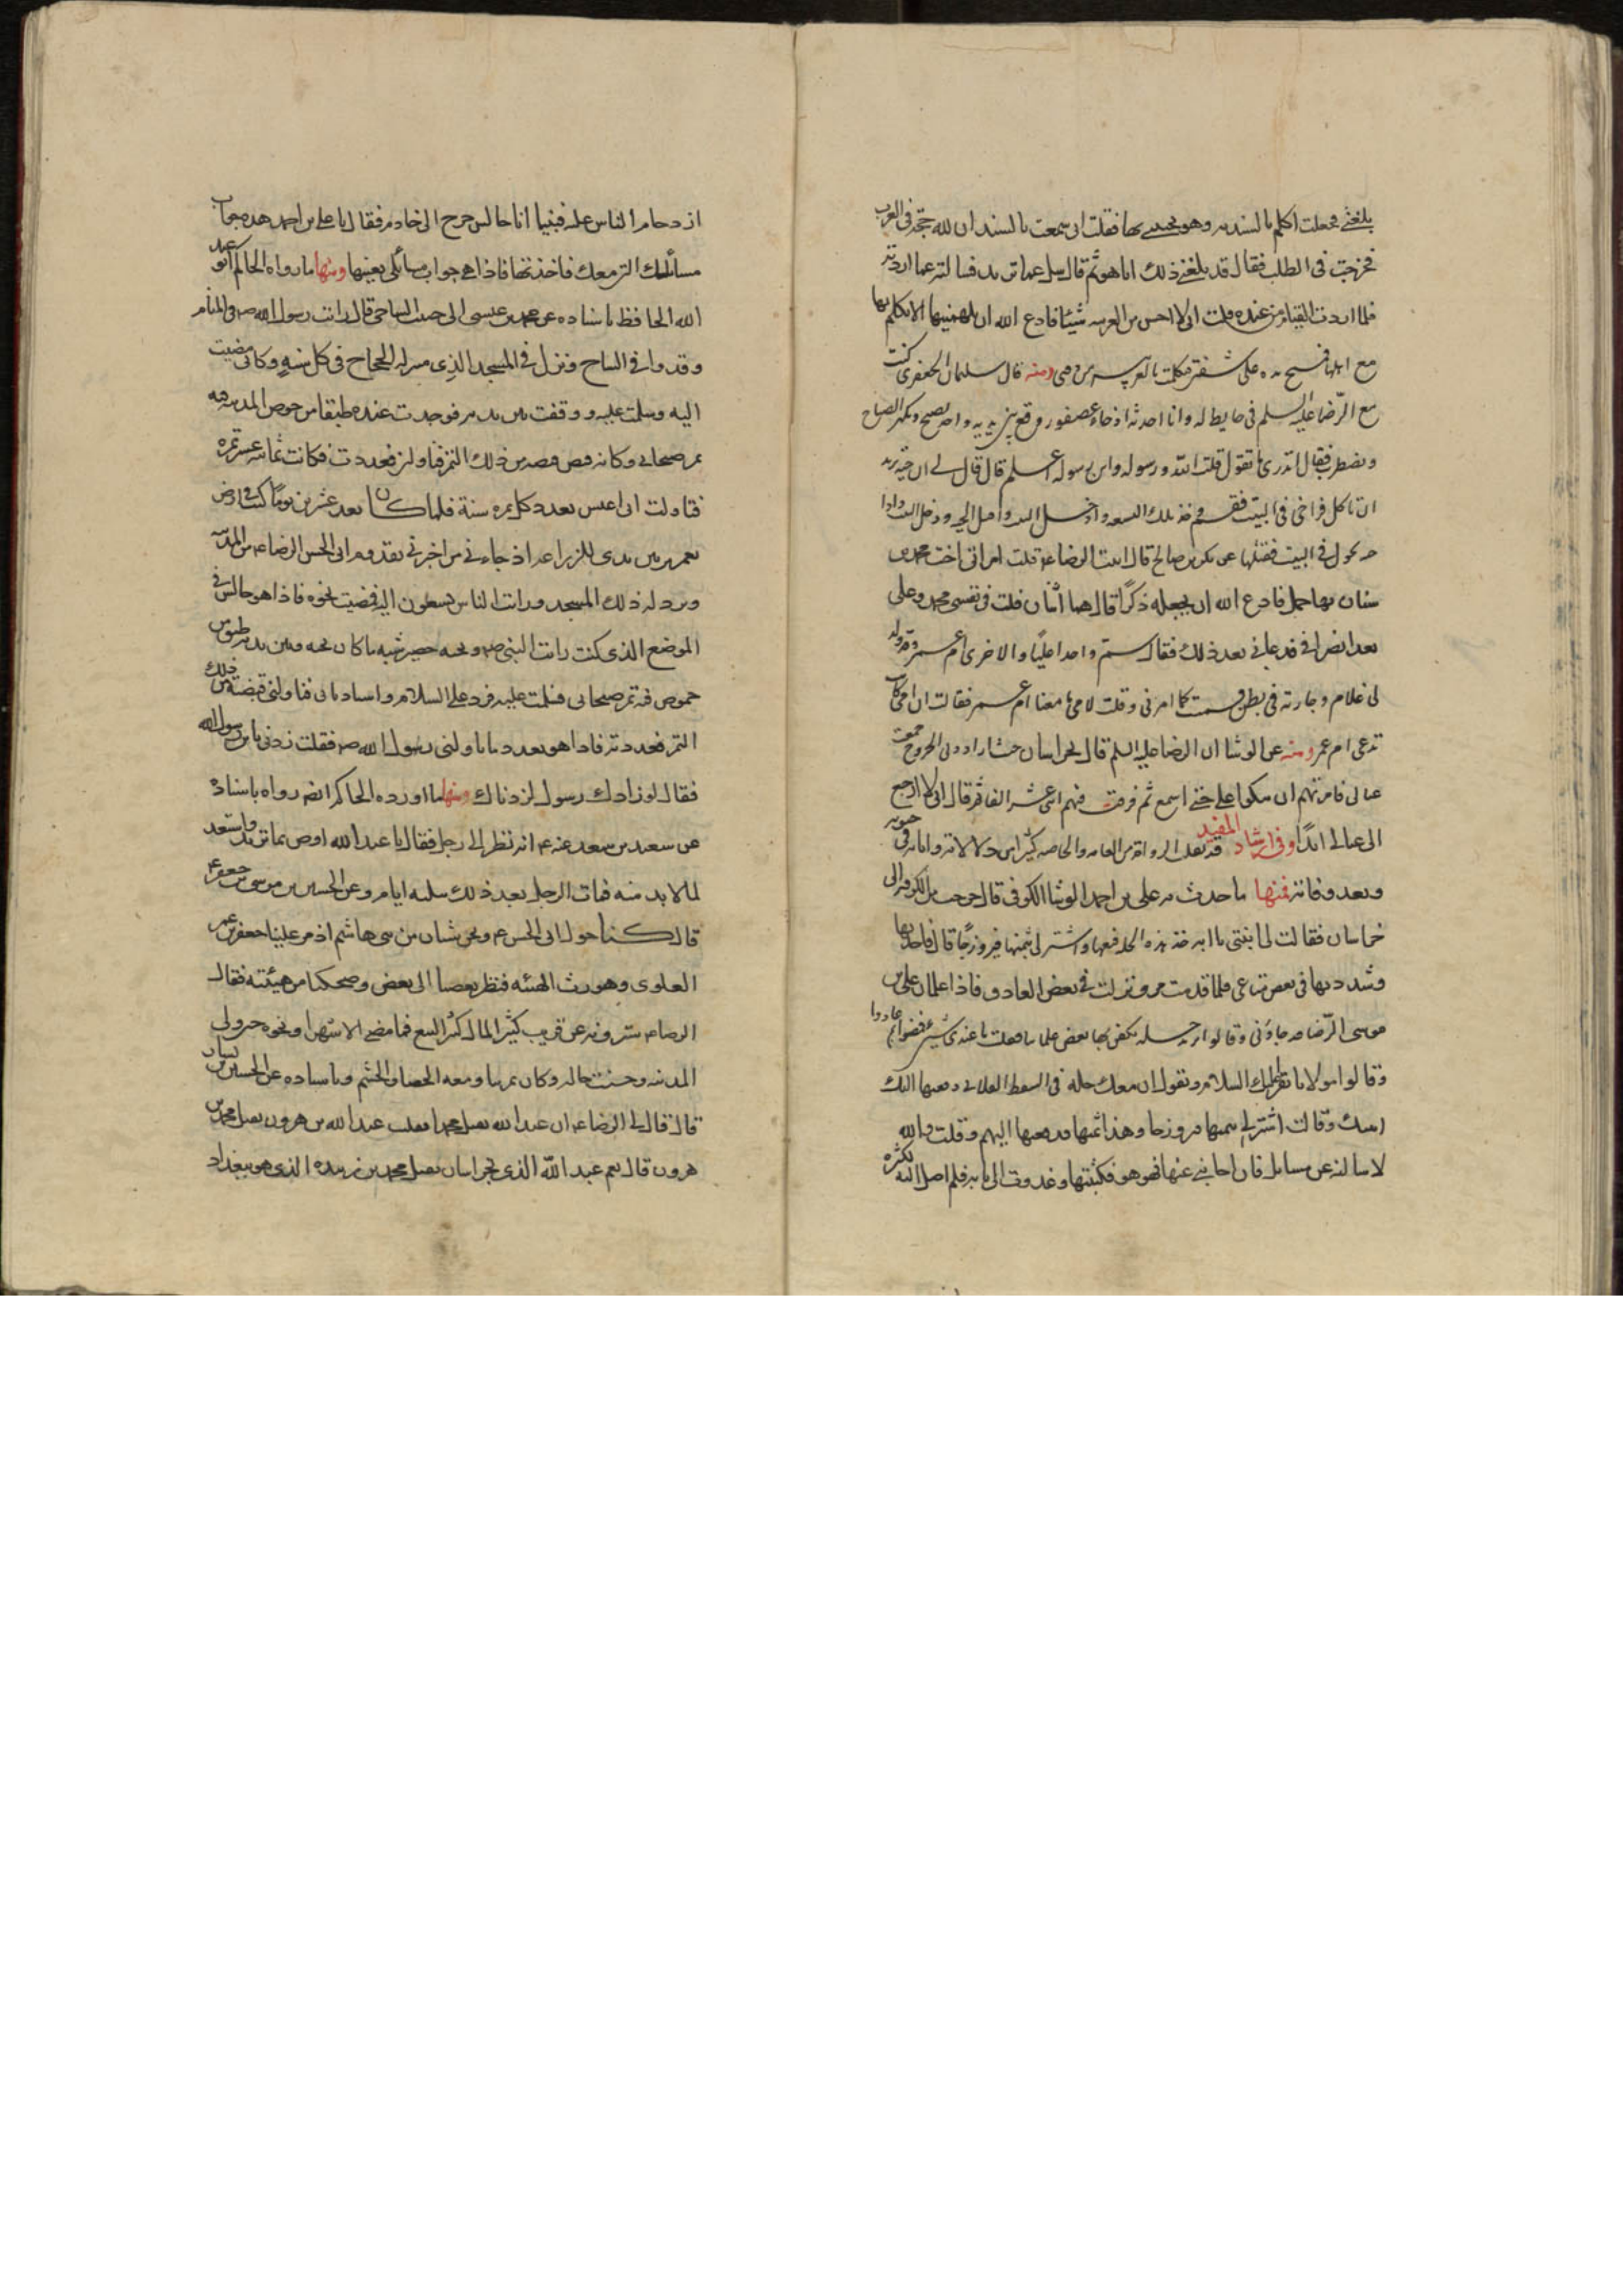 بلغتي فجعلت اكلمه بالسنديه وهو يجيبني بها فقلت اني سمعت بالسند ان لله حجة في العرب
فخرجت في الطلب فقال قد بلغني ذلك انا هو ثم قال سل عما تريد فسالته عما اردته
فلما اردت القيام من عنده قلت اني لا احسن من العربيه شيئا فادع الله ان يلهمنيها لاتكلم بها
مع اهلها فمسح يده على شفتي فتكلمت بالعربيه من وقتي ومنه قال سليمان الجعفري كنت
مع الرضا عليه السلم في حايط له وانا احدثه اذ جاء عصفور وقع بين يديه واخذ يصيح ويكثر الصياح
ويضطرب فقال اتدري ما تقول قلت الله ورسوله وابن رسوله اعلم قال قال لي ان حية تريد
ان تاكل فراخي في البيت فقم فخذ تلك النسعه وادخل البيت واقتل الحيه ودخل البيت واذا
حيه تجول في البيت فقتلتها عن بكر بن صالح قال اتيت الرضا ع قلت امراتي اخت محمد بن
سنان بها حمل فادع الله ان يجعله ذكرا قال هما اثنان قلت في نفسي محمد وعلي
بعد انصرافي فدعاني بعد ذلك فقال سم واحدا عليا والاخرى ام عمر وقد ولد
لي غلام وجارية في بطن فسميت كما امرني وقلت لامي ما معنا ام عمر فقالت ان امي كانت
تدعى ام عمر ومنه عن الوشا ان الرضا عليه السلم قال بخراسان حيث ارادوا بي الخروج جمعت
عيالي فامرتهم ان يبكوا علي حتى اسمع ثم فرقت فيهم اثني عشر الفا ثم قال اني لا ارجع
الى عيالي ابدا وفي ارشاد المفيد قد نقلت الرواة من العامه والخاصه كثيرا من دلالاته واياته في حيوته
وبعد وفاته فمنها ما حدث به علي بن احمد الوشا الكوفي قال خرجت من الكوفه الى
خراسان فقالت لي ابنتي يا ابه خذ هذه الحله فبعها واشتر لي بثمنها فيروزجا قال فاخذتها
وشددتها في بعض متاعي فلما قدمت مرو نزلت في بعض الفنادق فاذا غلمان علي بن
موسى الرضا ع جاؤني وقالوا نريد حله نكفن بها بعض غلماننا فقلت ما عندي شيئ فمضوا ثم عادوا
وقالوا مولانا يقرئك السلام ويقول ان معك حله في السفط الفلاني دفعتها اليك
ابنتك وقالت اشتر لي بثمنها فيروزجا وهذا ثمنها فدفعتها اليهم وقلت والله
لاسالنه عن مسايل فان اجابني عنها فهو هو فكتبتها وغدوت الى بابه فلم اصل اليه لكثرة
ازدحام الناس عليه فبينا انا جالس خرج الي خادم فقال يا علي بن احمد هذه جوابات
مسائلك التي معك فاخذتها فاذا هي جواب مسائلي بعينها ومنها ما رواه الحاكم ابو عبد
الله الحافظ باسناده عن محمد بن عيسى ابي حبيب النباحي قال رايت رسول الله ص في المنام
وقد وافى النباح ونزل في المسجد الذي ينزله الحجاج في كل سنة وكاني مضيت
اليه وسلمت عليه ووقفت بين يديه فوجدت عنده طبقا من خوص المدينه فيه
تمر صيحاني وكانه قبض قبضه من ذلك التمر فناولني فعددت فكانت ثمانيه عشر تمره
فتاولت اني اعيش بعدد كل تمره سنة فلما كان بعد عشرين يوما كنت في ارض
تعمر بين يدي للزراعه اذ جاءني من اخبرني بقدوم ابي الحسن الرضا ع من المدينه
ونزوله ذلك المسجد ورايت الناس يسعون اليه فمضيت نحوه فاذا هو جالس في
الموضع الذي كنت رايت النبي ص وتحته حصير شبه ما كان تحته وبين يديه طبق من
خوص فيه تمر صيحاني فسلمت عليه فرد علي السلام واستدناني فناولني قبضة من ذلك
التمر فعددته فاذا هو بعدد ما ناولني رسول الله ص فقلت زدني يابن رسول الله
فقال لو زادك رسول الله لزدناك ومنها ما اورده الحاكم ايضا رواه باسناده
عن سعيد بن سعد عنه ع انه نظر الى رجل فقال يا عبد الله اوص بما تريد واستعد
لما لابد منه فمات الرجل بعد ذلك بثلثه ايام وعن الحسين بن موسى بن جعفر ع
قال كنا حول ابي الحسن ع ونحن شبان من بني هاشم اذ مر علينا جعفر بن عمر
العلوي وهو رث الهيئه فنظر بعضنا الى بعض وضحكنا من هيئته فقال
الرضا ع سترونه عن قريب كثير المال كثير التبع فما مضى الا شهر او نحوه حتى ولي
المدينه وحسنت حاله وكان يمر بنا ومعه الخصيان والحشم وباسناده عن الحسين بن بشار
قال قال لي الرضا ع ان عبد الله يقتل محمدا فقلت عبد الله بن هرون يقتل محمد بن
هرون قال نعم عبد الله الذي بخراسان يقتل محمد بن زبيده الذي هو ببغداد